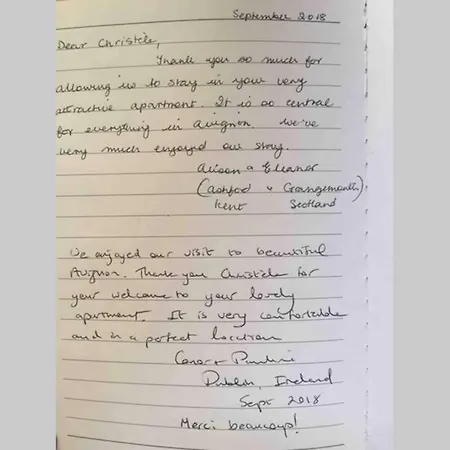 September 2018
Dear Christèle,
Thank you so much for
allowing us to stay in your very
attractive apartment. It is so central
for everything in Avignon. We've
very much enjoyed our stay.
Alison & Eleanor
(Ashford & Grangemouth)
Kent Scotland
We enjoyed our visit to beautiful
Avignon. Thank you Christèle for
your welcome to your lovely
apartment. It is very comfortable
and in a perfect location
Conor + Pauline
Dublin, Ireland
Sept 2018
Merci beaucoup!